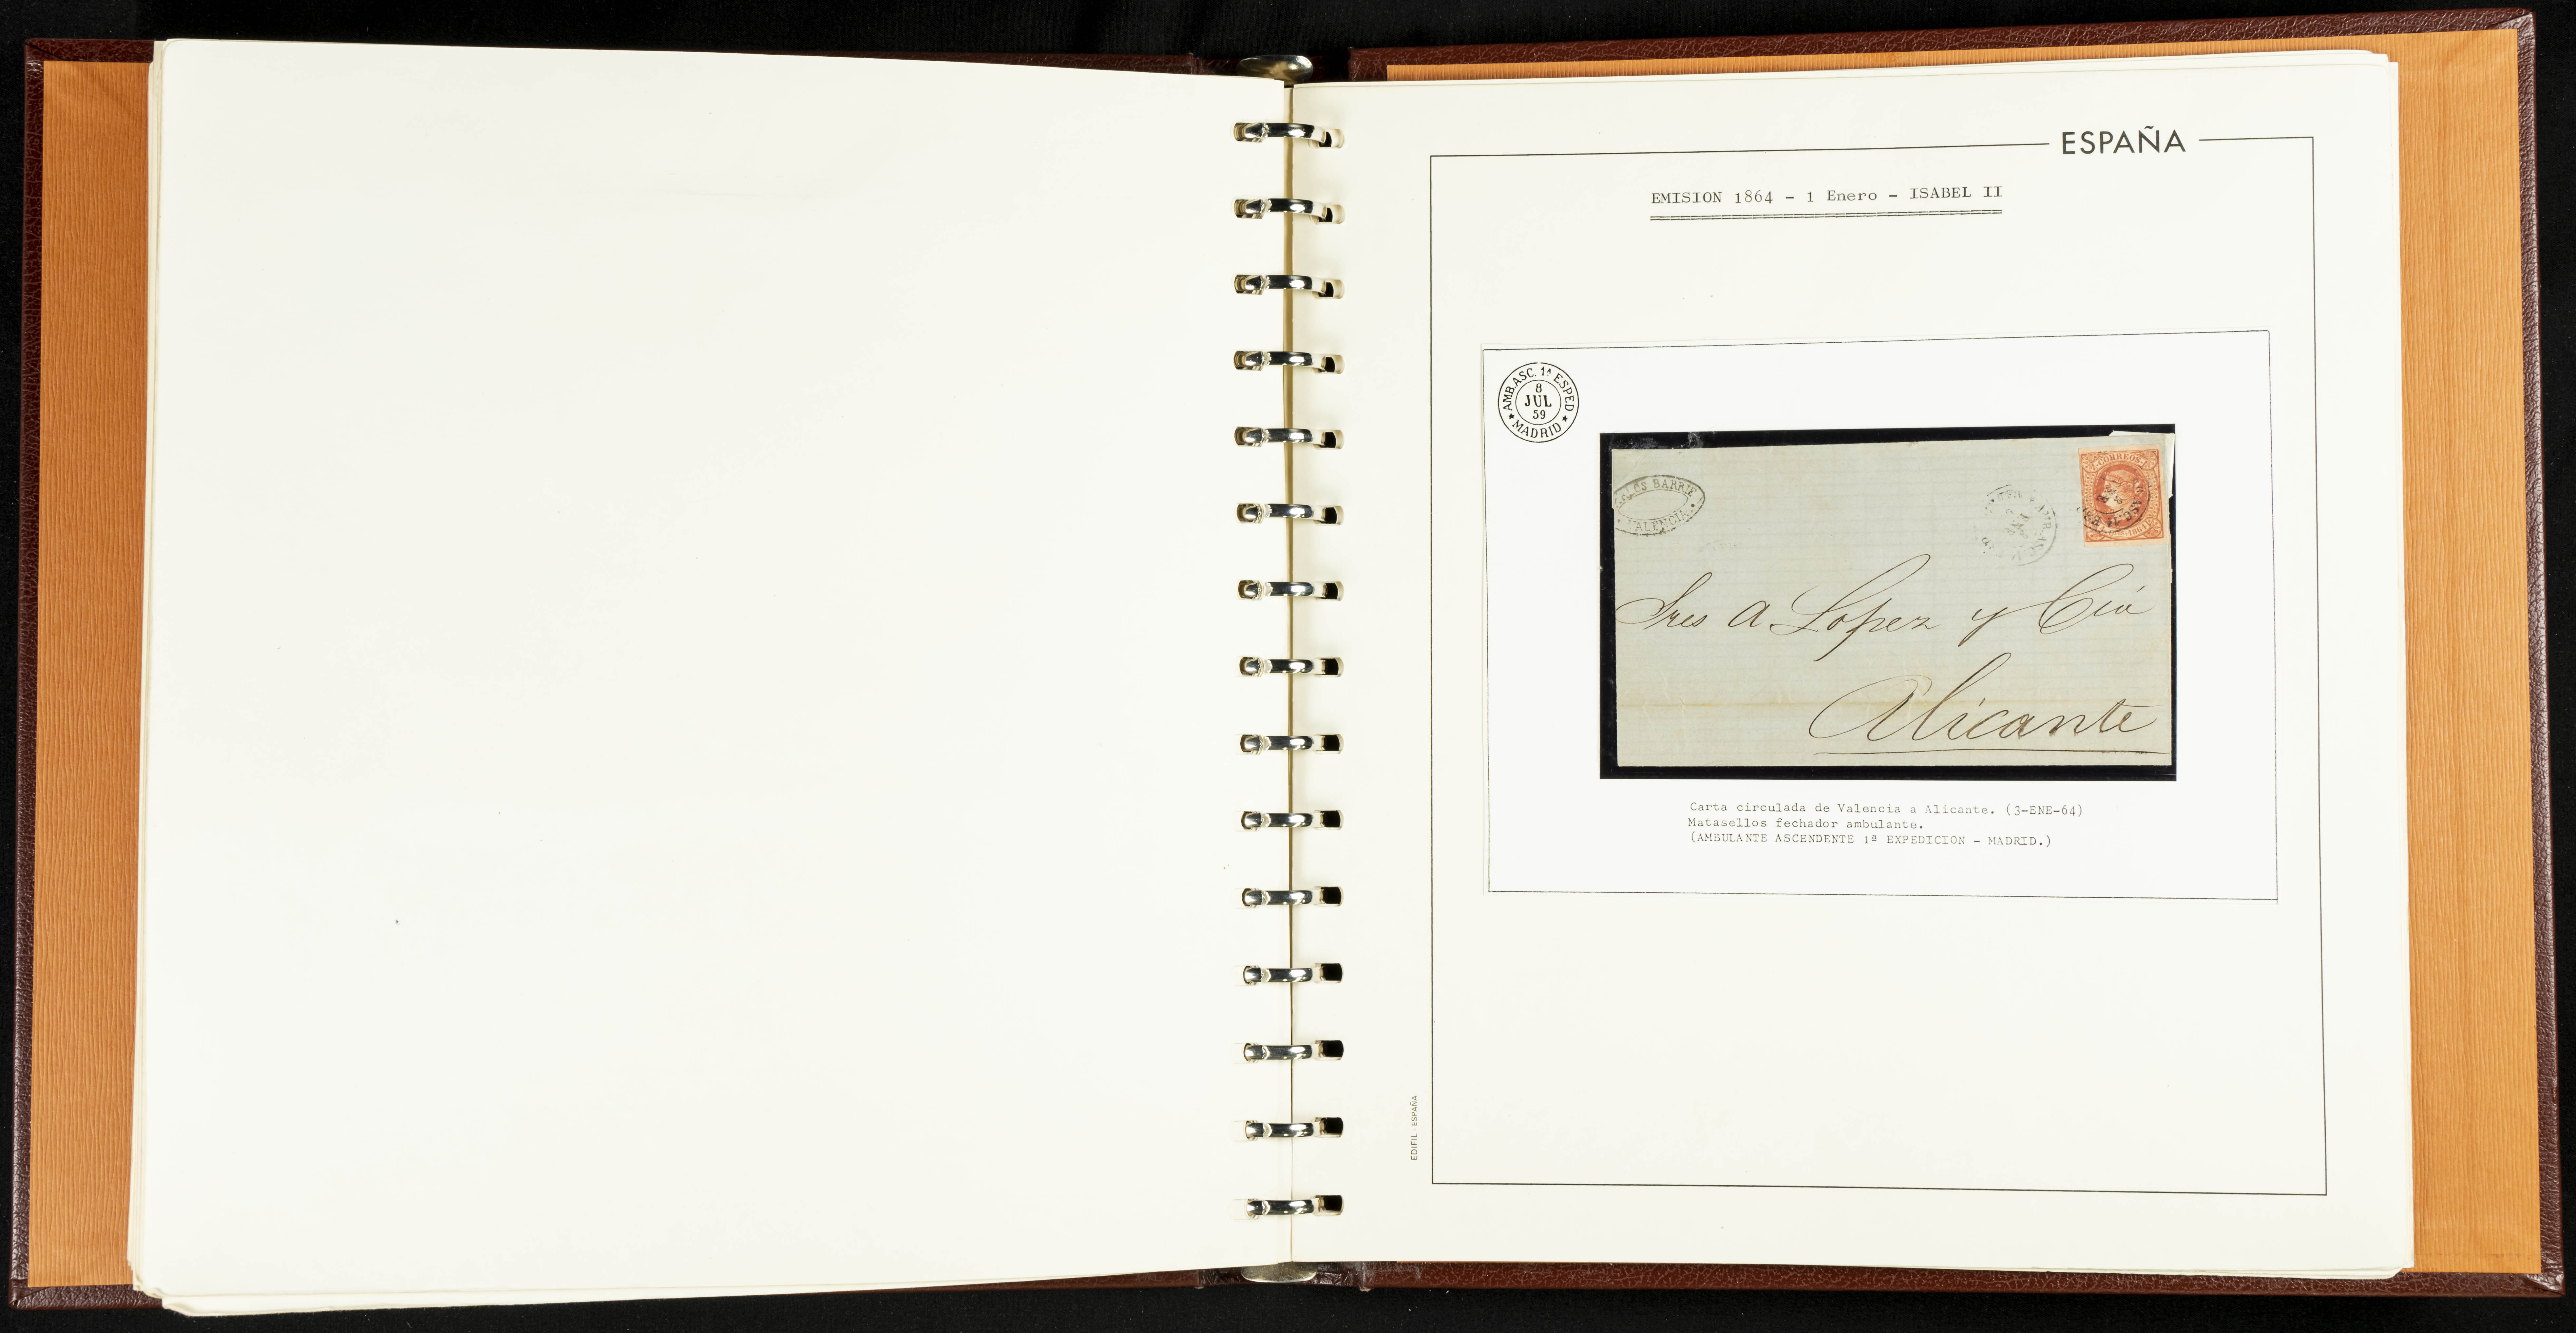 ESPAÑA
EMISION 1864 - 1 Enero - ISABEL II
AMB.ASC. 1ª ESPED
8
JUL
59
MADRID
BARRIE
VALENCIA
CORREOS
Sres A. Lopez y Cía
Alicante
Carta circulada de Valencia a Alicante. (3-ENE-64)
Matasellos fechador ambulante.
(AMBULANTE ASCENDENTE 1ª EXPEDICION - MADRID.)
EDIFIL - ESPAÑA